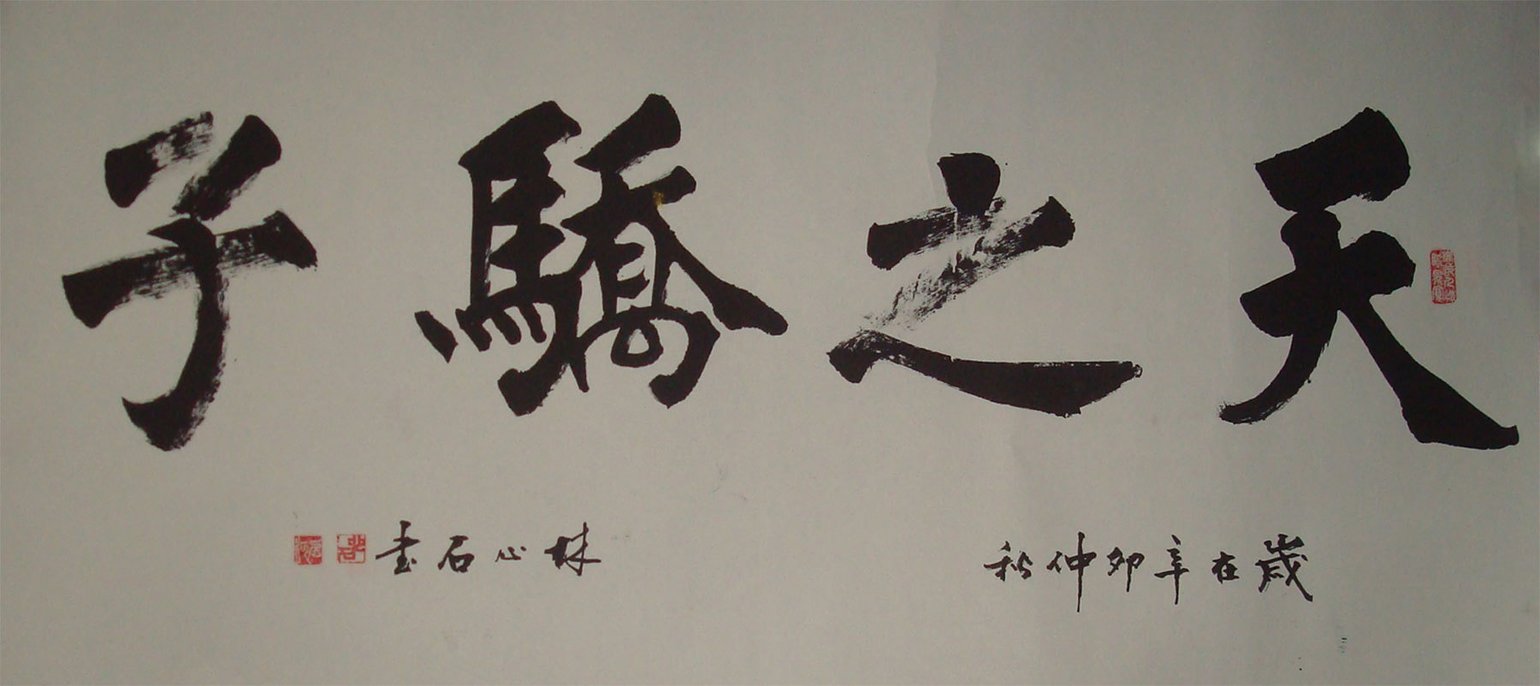 天之驕子
歲在辛卯仲秋
林心石书